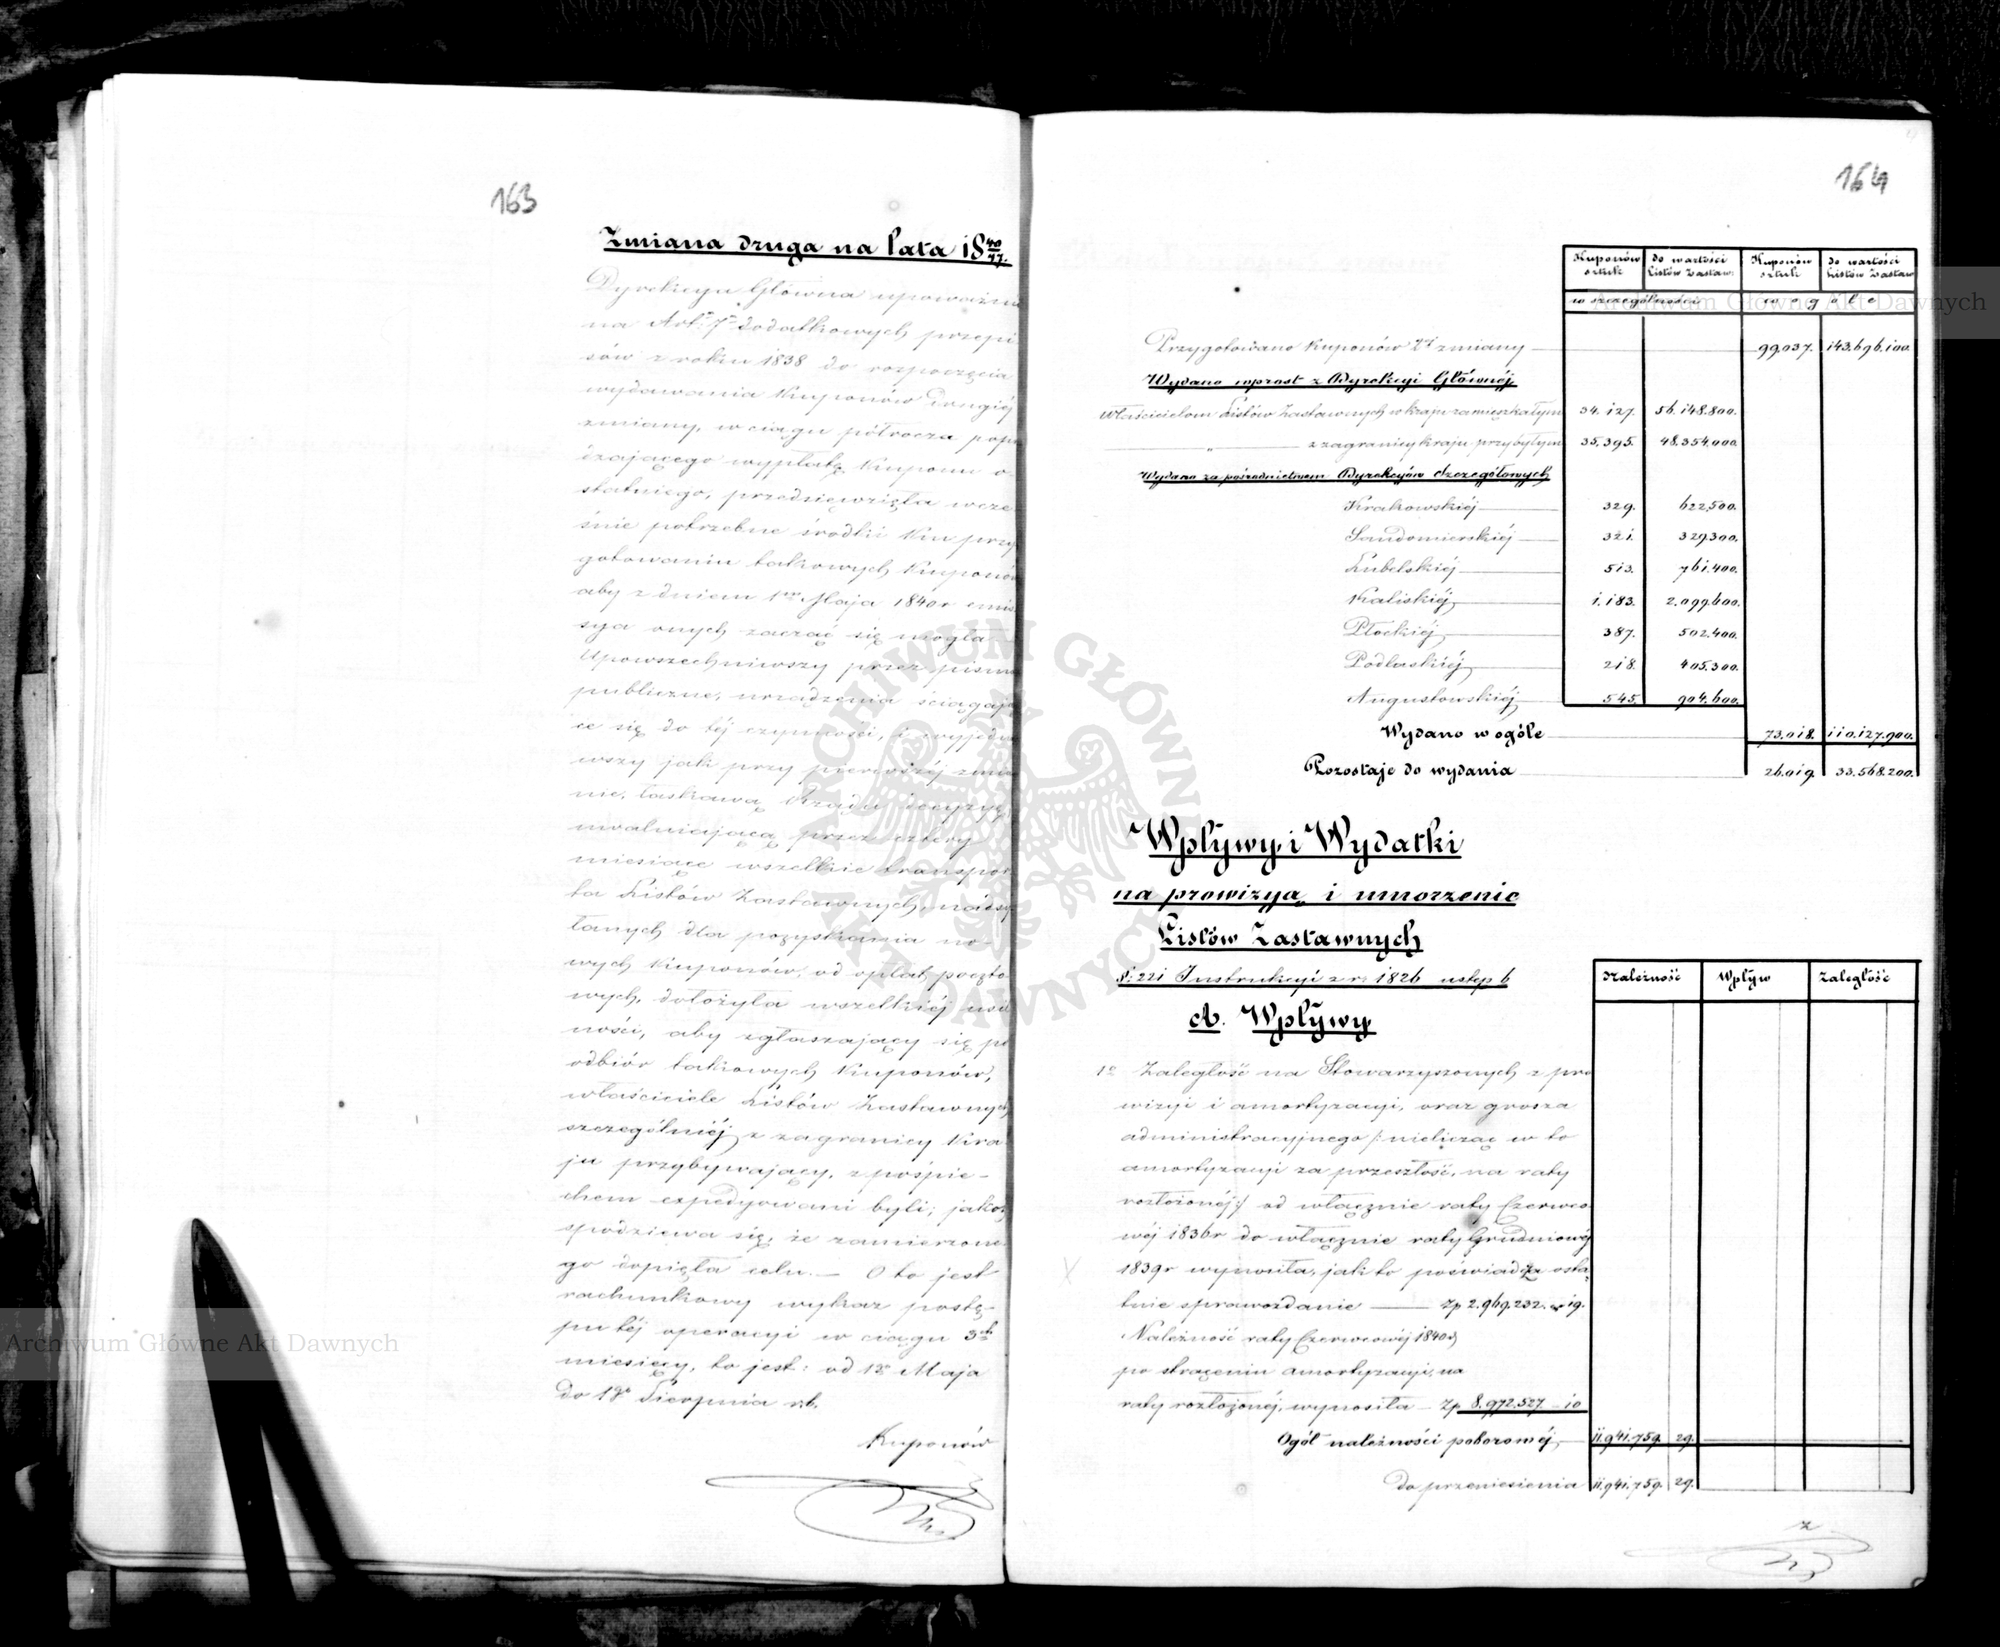 163
Zmiana druga na lata 18 40/47.
Dyrekcya Główna upoważnio
na Art: 7 dodatkowych przepi
sów z roku 1838 do rozpoczęcia
wydawania Kuponów drugiéj
zmiany, w ciągu półrocza popr
dzającego wypłatę Kuponu o-
statniego, przedsięwzięła wcze
śnie potrzebne środki ku przy
gotowaniu takowych Kuponów
aby z dniem 1m Maja 1840 r emis
sya onych zacząć się mogła.
Upowszechniwszy przez pisma
publiczne, urządzenia ściągają
ce się do téj czynności, i wyjedna
wszy jak przy pierwszéj zmia
nie, łaskawą Rządu decyzyę
uwalniającą przez cztery
miesiące wszelkie transpor
ta Listów Zastawnych, nadsy
łanych dla pozyskania no-
wych Kuponów, od opłat poczto
wych, dołożyła wszelkiéj usil
ności, aby zgłaszający się po
odbiór takowych Kuponów,
właściciele Listów Zastawnych
szczególniéj z zagranicy Kra
ju przybywający, z pośpie-
chem expedyowani byli; jakoż
spodziewa się, że zamierzone
go dopięła celu. — Oto jest
rachunkowy wykaz postę-
pu téj operacyi w ciągu 3ch
miesięcy, to jest: od 1go Maja
do 1go Sierpnia r.b.
Kuponów
164
Kuponów sztuk | do wartości Listów Zastaw: | Kuponów sztuk | do wartości Listów Zastaw
w szczególności | w ogóle
Przygotowano Kuponów 2éj zmiany 99.037. 143.696.100.
Wydano wprost z Dyrekcyi Głównéj
Właścicielom Listów Zastawnych w kraju zamieszkałym 34.127. 56.148.800.
„ z zagranicy kraju przybyłym 35.395. 48.354.000.
Wydano za pośrednictwem Dyrekcyów Szczegółowych
Krakowskiéj 329. 622.500.
Sandomierskiéj 321. 329.300.
Lubelskiéj 513. 761.400.
Kaliskiéj 1.183. 2.099.600.
Płockiéj 387. 502.400.
Podlaskiéj 218. 405.300.
Augustowskiéj 545. 904.600.
Wydano w ogóle 73.018. 110.127.900.
Pozostaje do wydania 26.019. 33.568.200.
Wpływy i Wydatki
na prowizyą i umorzenie
Listów Zastawnych
§: 221 Instrukcyi z r: 1826 ustęp 6
A. Wpływy
Należność | Wpływ | Zaległość
1o Zaległość na Stowarzyszonych z pro
wizyi i amortyzacyi, oraz grosza
administracyjnego /: nielicząc w to
amortyzacyi za przeszłość, na raty
rozłożonéj :/ od włącznie raty Czerwco
wéj 1836 r do włącznie raty Grudniowéj
1839 r wynosiła, jak to poświadcza osta
tnie sprawozdanie — Zp 2.969.232. - 19.
Należność raty Czerwcowéj 1840 r
po strąceniu amortyzacyi, na
raty rozłożonéj, wynosiła — Zp 8.972.527. - 10
Ogół należności poborowéj 11.941.759. 29.
do przeniesienia 11.941.759. 29.
Archiwum Główne Akt Dawnych
ARCHIWUM GŁÓWNE AKT DAWNYCH
Archiwum Główne Akt Dawnych